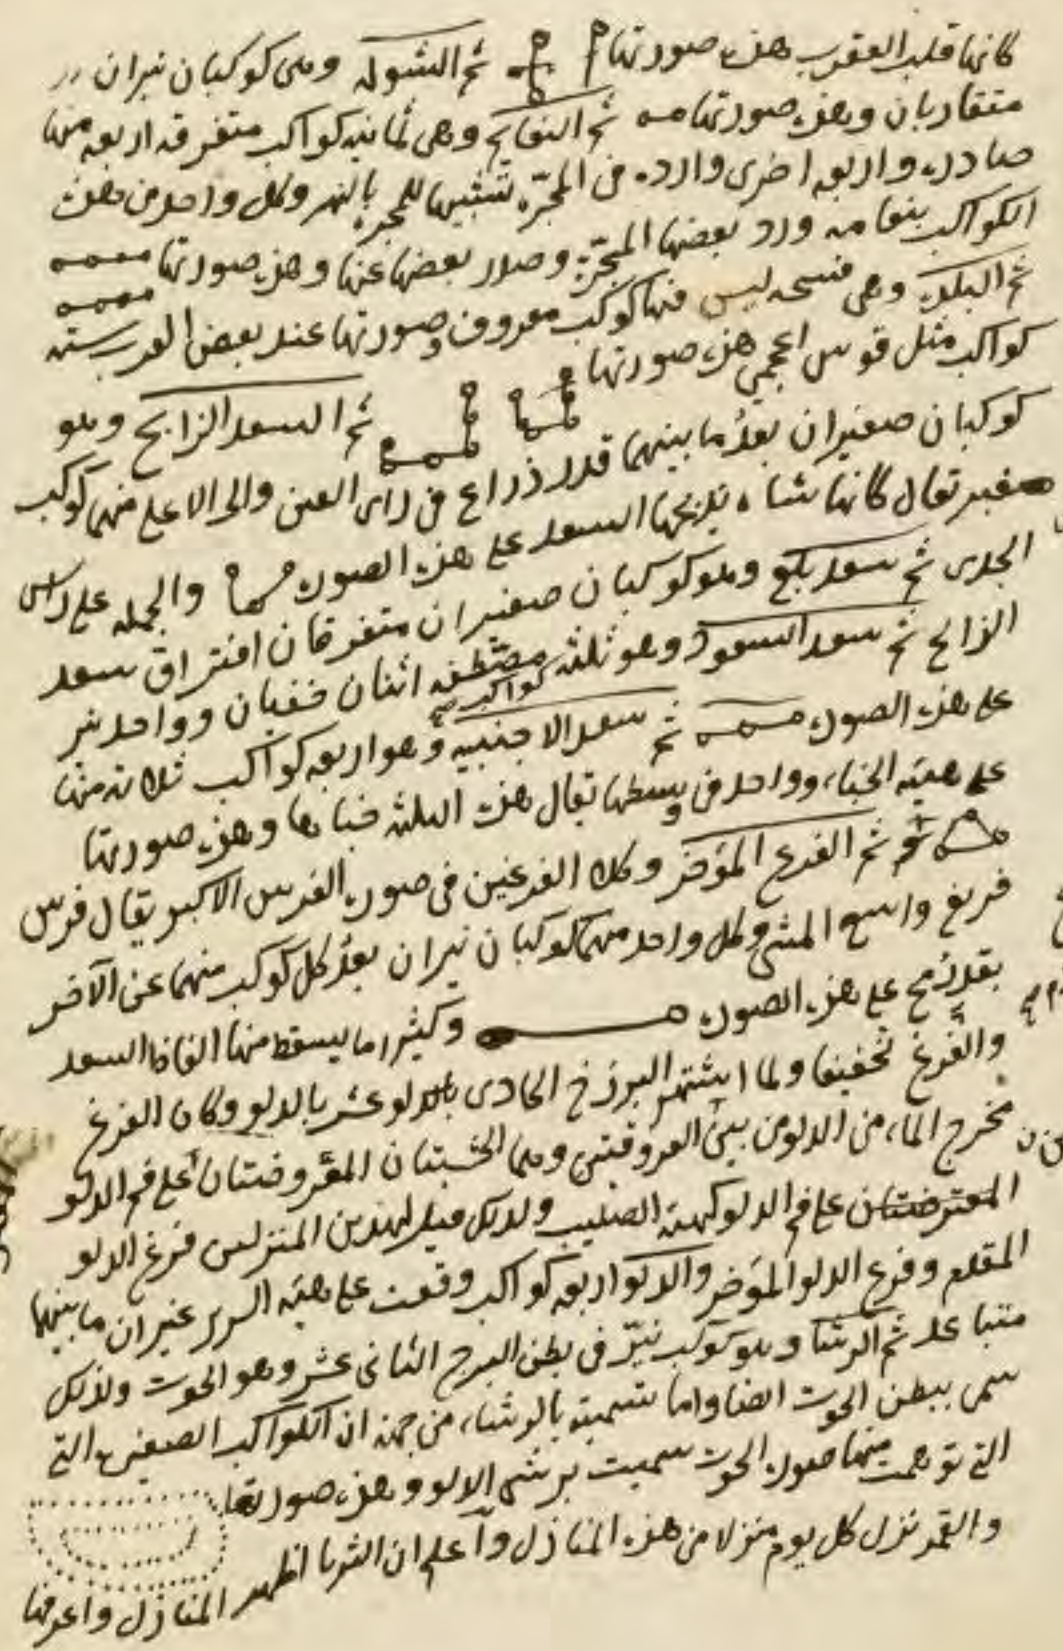 كانها قلب العقرب هذه صورتها ثم الشوله وهى كوكبان نيران
متقاربان وهذه صورتها ثم النعايم وهى ثمانيه كواكب متفرقه اربعه منها
صادره واربعه اخرى وارده فى المجرّه تشبيها للمجره بالنهر وكل واحد من هذه
الكواكب بنعامه ورد بعضها المجرّه وصدر بعضها عنها وهذه صورتها
ثم البلده وهى فسحه ليس فيها كوكب معروف وصورتها عند بعض العرب سته
كواكب مثل قوس اعجمى هذه صورتها
ثم السعد الذابح وهو
كوكبان صغيران بعد ما بينهما قدر ذراع فى راى العين والى الاعلى منهما كوكب
صغير تقال كانها شاه يذبحها السعد على هذه الصوره والجمله على راس
الجدى ثم سعد بلع وهو كوكبان صغيران متفرقان افتراق سعد
الذابح ثم سعد السعود وهو ثلثه كواكب مصطفه اثنان خفيان وواحد نير
على هذه الصوره ثم سعد الاخبيه وهو اربعه كواكب ثلاثه منها
على هيئه الخباء وواحد فى وسطها تقال هذه الثلثه خباها وهذه صورتها
ثم الفرغ المؤخر وكلا الفرغين فى صوره الفرس الاكبر يقال فرس
فريغ واسع المشى وكل واحد منهما كوكبان نيران بعد كل كوكب منهما عن الآخر
بقدر رمح على هذه الصوره وكثيرا ما يسقط منها الفاظ السعد
والفرغ تخفيفا ولما اشتهر البرزخ الحادى عشر بالدلو وكان الفرغ
مخرج الماء من الدلو من بين العروقتين وهما الخشبتان المعروضتان على فم الدلو
المعترضتان على فم الدلو كهيئه الصليب ولذلك قيل لهذين المنزلين فرغ الدلو
المقدم وفرغ الدلو المؤخر والدلو اربعه كواكب وقعت على هيئه السرير غير ان ما بينهما
متباعد ثم الرشا وهو كوكب نيّر فى بطن البرج الثانى عشر وهو الحوت ولذلك
سمى ببطن الحوت ايضا واما تسميته بالرشاء من جهة ان الكواكب الصغيره التى
التى توهمت منها صوره الحوت سميت برشى الدلو وهذه صورتها
والقمر نزل كل يوم منزلا من هذه المنازل وآعلم ان الثريا اظهر المنازل واعرفها